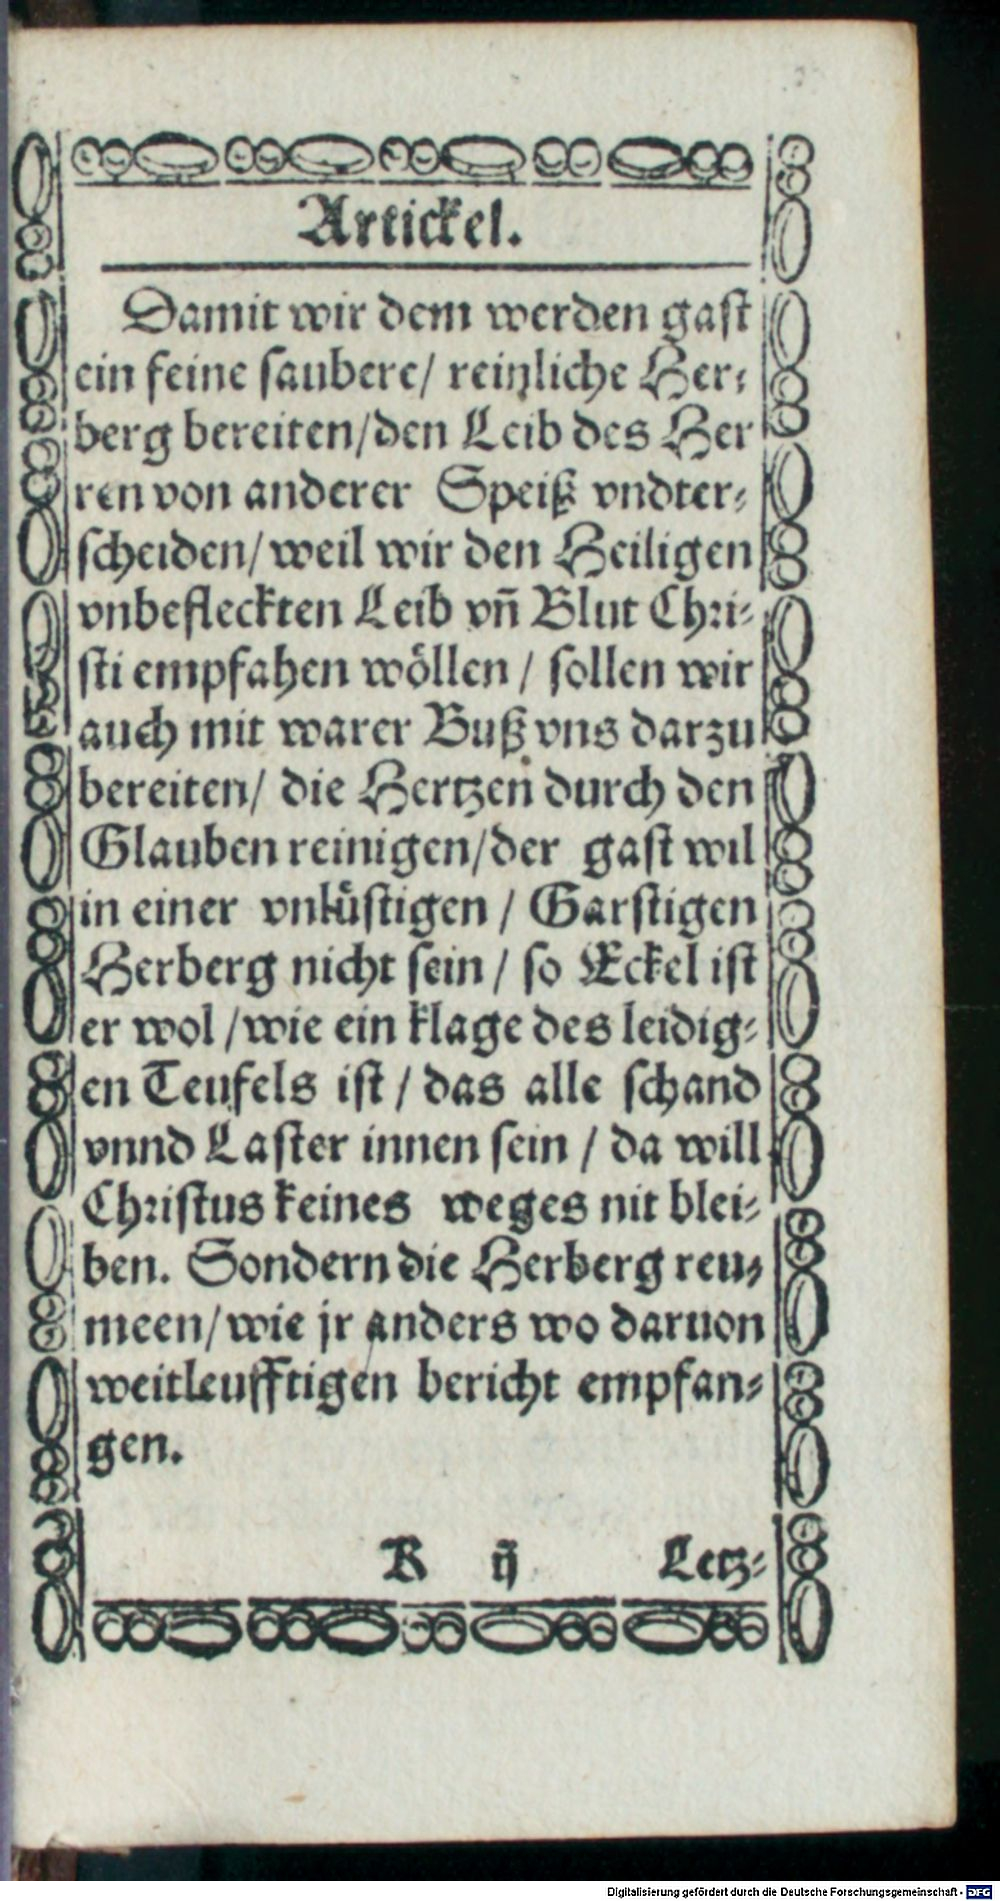 Artickel.
Damit wir dem werden gast
ein feine saubere/ reinliche Her-
berg bereiten/den Leib des Her
ren von anderer Speiß vndter-
scheiden/ weil wir den Heiligen
vnbefleckten Leib vn̄ Blut Chri-
sti empfahen wöllen / sollen wir
auch mit warer Buß vns darzu
bereiten/ die Hertzen durch den
Glauben reinigen/der gast wil
in einer vnlüstigen / Garstigen
Herberg nicht sein / so Eckel ist
er wol /wie ein klage des leidig-
en Teufels ist / das alle schand
vnnd Laster innen sein / da will
Christus keines weges nit blei-
ben. Sondern die Herberg reu-
meen/wie jr anders wo daruon
weitleufftigen bericht empfan-
gen.
K ij Letz-
Digitalisierung gefördert durch die Deutsche Forschungsgemeinschaft - DFG